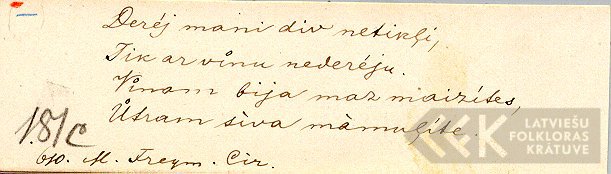 Derēj mani div netikļi,
Tik ar vīnu nederēju.
Vīnam bija maz maizītes,
Ūtram sīva māmuļīte.
1.81C
610. M. Freym. Cir.
LATVIEŠU
FOLKLORAS
KRĀTUVE